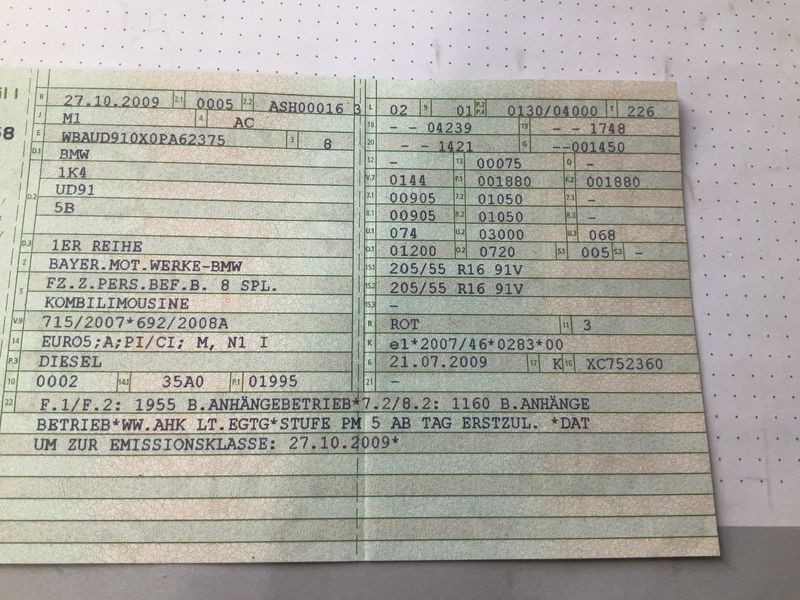 il I
B 27.10.2009 2.1 0005 2.2 ASH00016 3
J M1 4 AC
E WBAUD910X0PA62375 3 8
D.1 BMW
1K4
D.2 UD91
5B
D.3 1ER REIHE
2 BAYER.MOT.WERKE-BMW
5 FZ.Z.PERS.BEF.B. 8 SPL.
KOMBILIMOUSINE
V.9 715/2007*692/2008A
14 EURO5;A;PI/CI; M, N1 I
P.3 DIESEL
10 0002 14.1 35A0 P.1 01995
L 02 9 01 P.2 P.4 0130/04000 T 226
18 - - 04239 19 - - 1748
20 - - 1421 G --001450
12 - 13 00075 Q -
V.7 0144 F.1 001880 F.2 001880
7.1 00905 7.2 01050 7.3 -
8.1 00905 8.2 01050 8.3 -
U.1 074 U.2 03000 U.3 068
O.1 01200 O.2 0720 S.1 005 S.2 -
15.1 205/55 R16 91V
15.2 205/55 R16 91V
15.3 -
R ROT 11 3
K e1*2007/46*0283*00
6 21.07.2009 17 K 16 XC752360
21 -
22 F.1/F.2: 1955 B.ANHÄNGEBETRIEB*7.2/8.2: 1160 B.ANHÄNGE
BETRIEB*WW.AHK LT.EGTG*STUFE PM 5 AB TAG ERSTZUL. *DAT
UM ZUR EMISSIONSKLASSE: 27.10.2009*